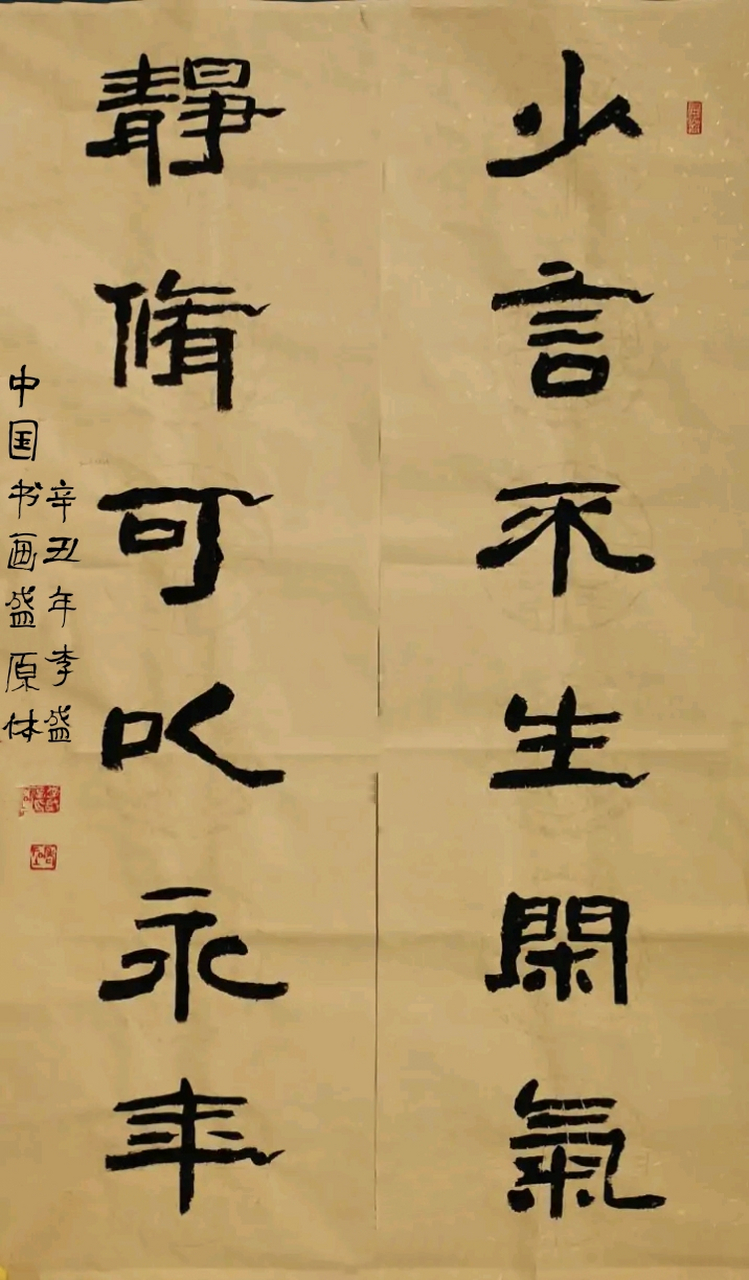 少言不生閑氣
靜脩可以永年
辛丑年李盛
中国书画盛原体